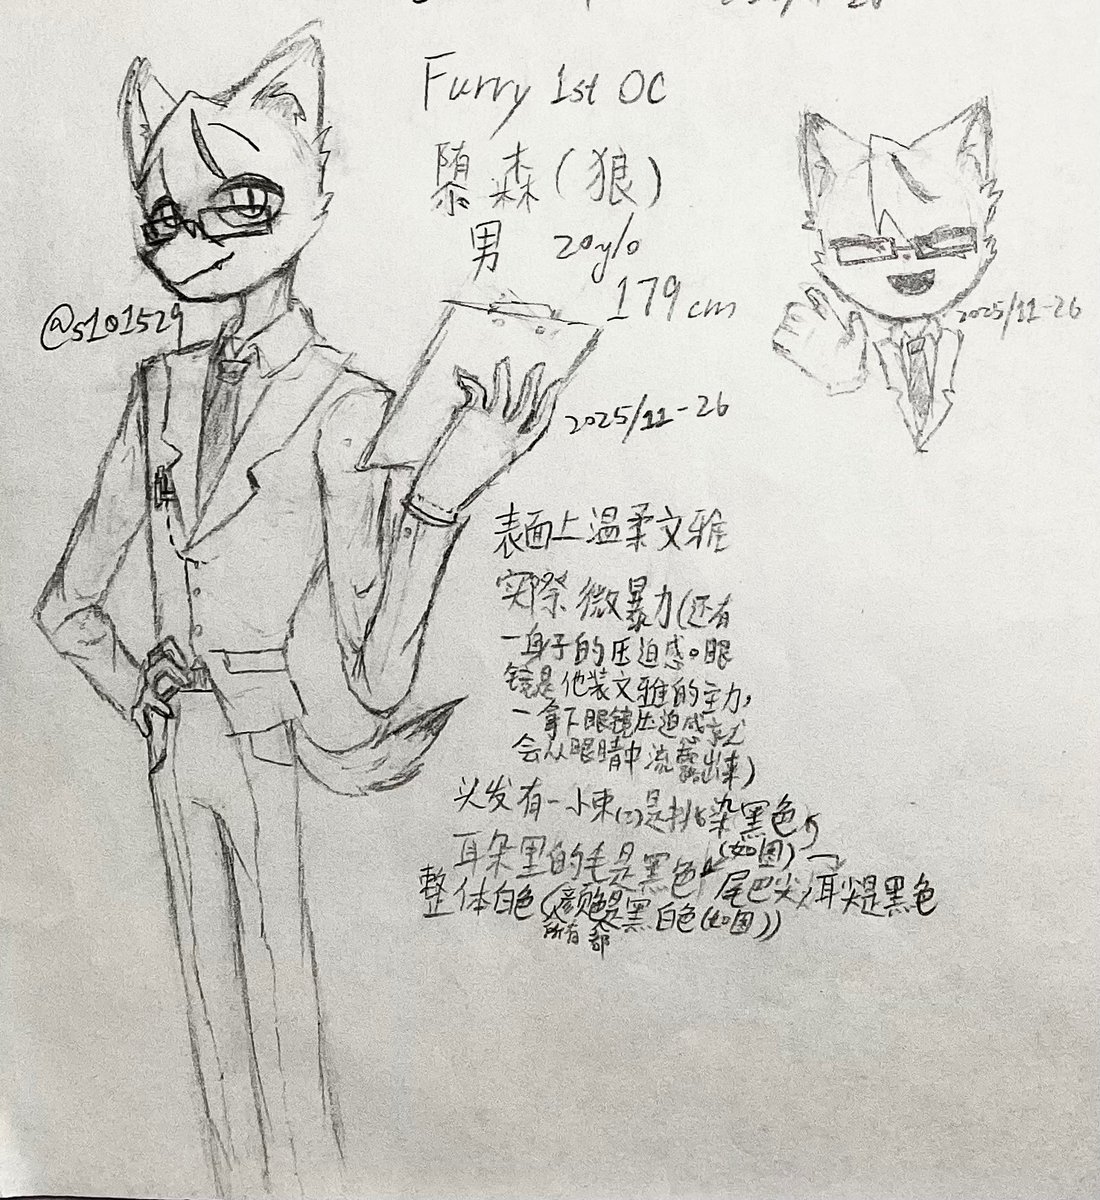 Furry 1st OC
森(狼)
男 20y/o
179cm
@s101529
2025/11-26
2025/11-26
表面上温柔文雅
实际微暴力(还有
一身子的压迫感。眼
镜是他装文雅的主力,
一拿下眼镜压迫感就
会从眼睛中流露出来)
头发有一小束(三)是挑染黑色
(如图)
耳朵里的毛是黑色 尾巴尖/耳尖是黑色
整体白色(颜色是黑白色(如图))
所有 都